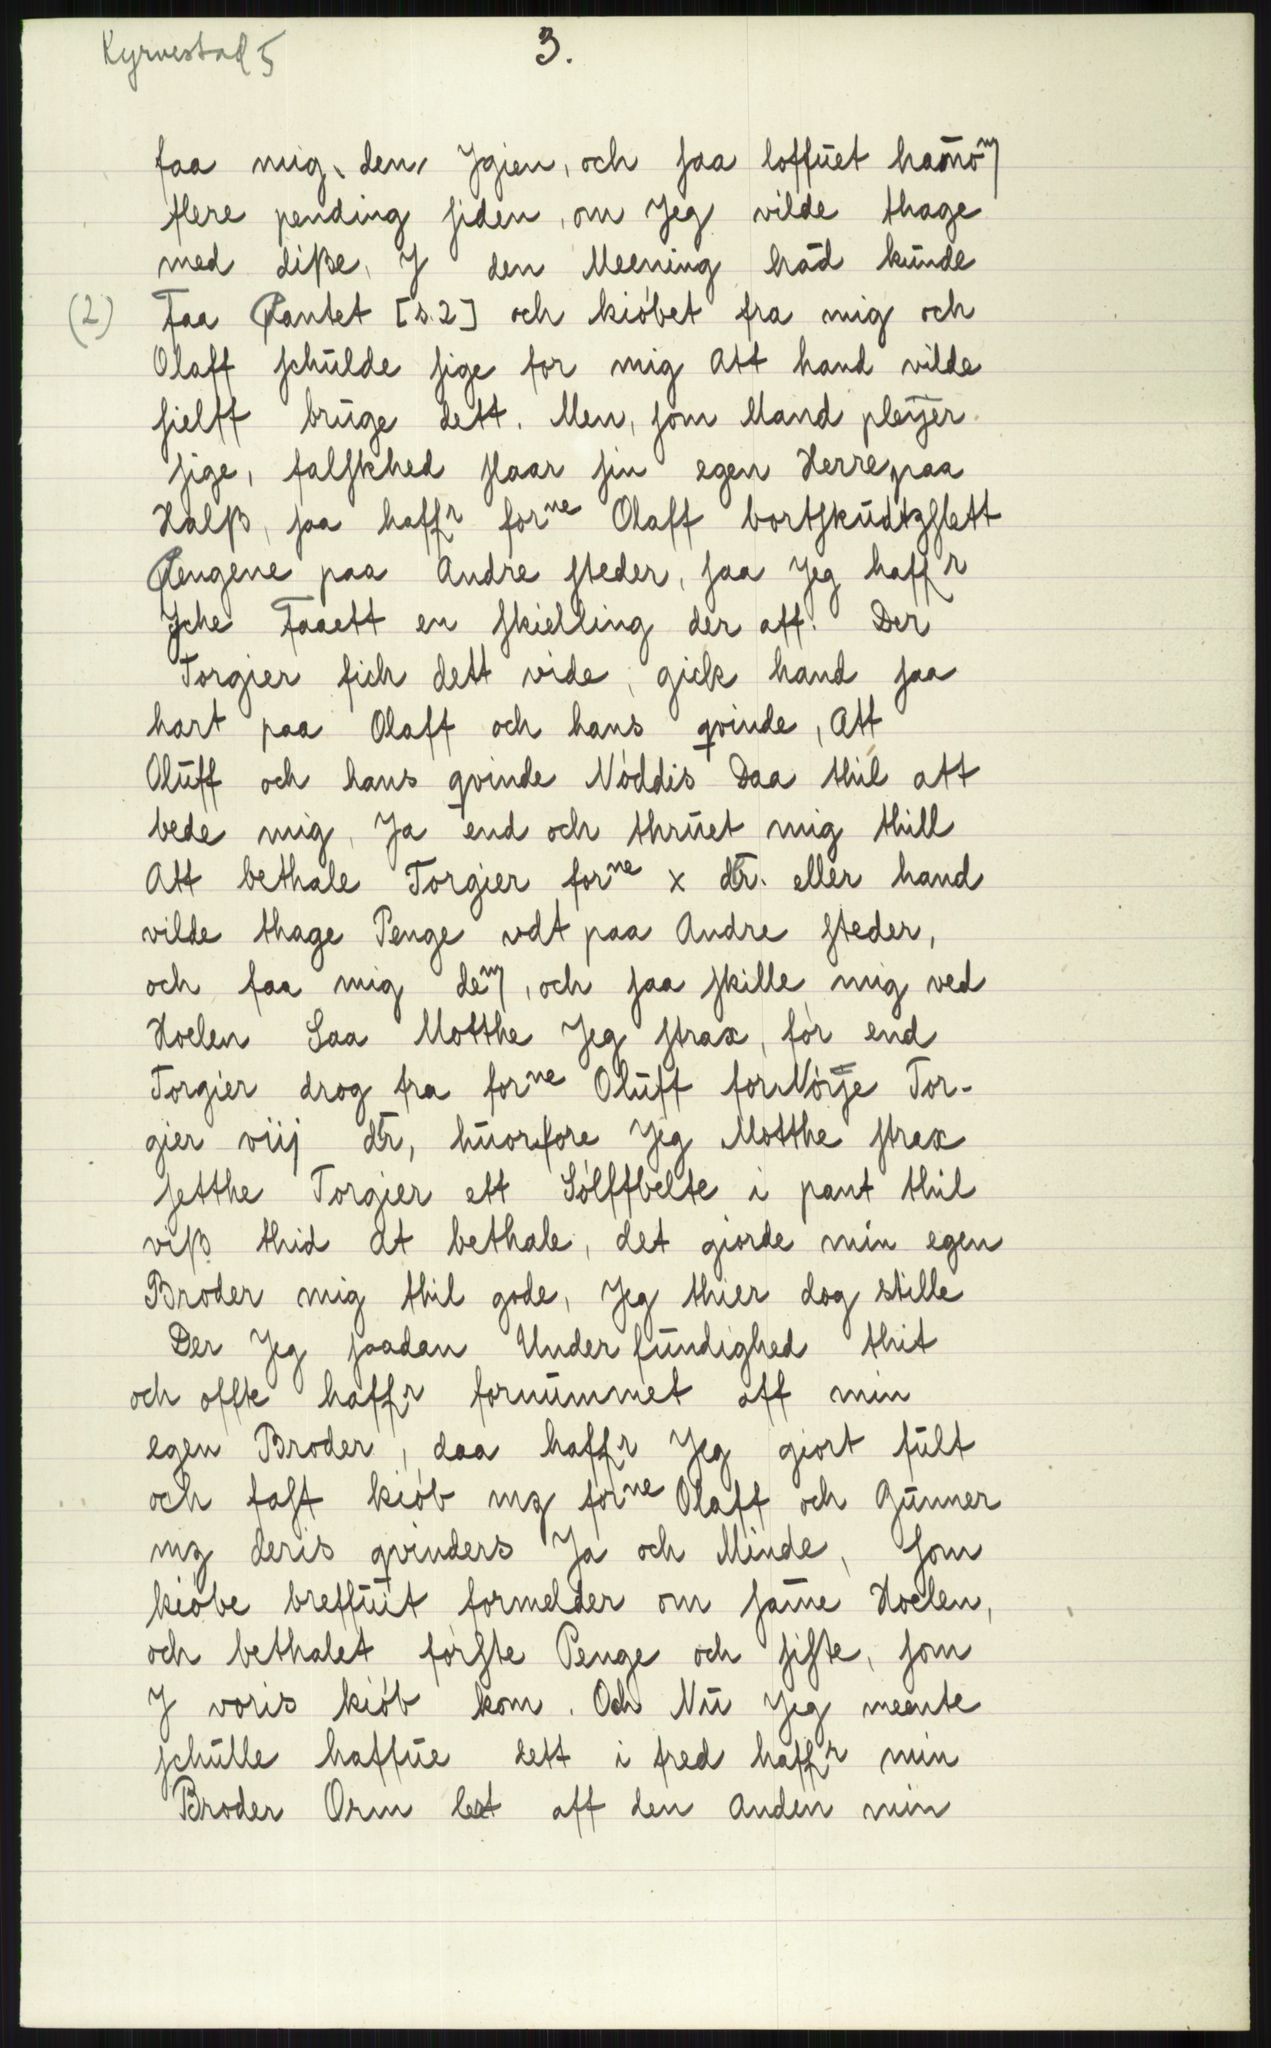 Kyrvestad 5
3.
faa mig, den, Ygien, och saa loffuet hanō
flere pending siden, om Jeg vilde thage
med diße, J den Meening hād kunde
(2) Faa Pantet [s. 2] och kiøbet fra mig och
Olaff schulde sige for mig Att hand vilde
sielff bruge dett. Men, som Mand pleÿer
sige, falskhed slaar sin egen Herre paa
Halß, saa haffr forne Olaff bortskudtzslett
Pengene paa Andre steder, saa Jeg haffr
Jche Faaett en skielling der aff. Der
Torgier fich dett vide, gick hand saa
hart paa Olaff och hans qvinde, Att
Oluff och hans qvinde Nøddis Daa thil att
bede mig, Ja end och thruet mig thill
Att bethale Torgier forne x dr. eller hand
vilde thage Penge vdt paa Andre steder,
och faa mig dem, och saa skille mig ved
Hoelen Saa Motthe Jeg strax, før end
Torgier drog fra forne Oluff forNørje Tor-
gier viij dr, huorfore Jeg Motthe strax
setthe Torgier ett Sølffbelte i pant thil
viß thid At bethale, det giorde min egen
Broder mig thil gode, Jeg thier dog stille
Der Jeg saadan Underfundighed thit
och offte haffr fornummet aff min
egen Broder, daa haffr Jeg giort fult
och fast kiøb mz forne Olaff och Gunner
mz deris qvinders Ja och Minde, som
kiøbe breffuit formelder om same Hoelen,
och bethalet første Penge och siste, som
J voris kiøb kom. Och Nu Jeg meente
schulle haffue dett i fred haffr min
Broder Orm lest aff den anden min